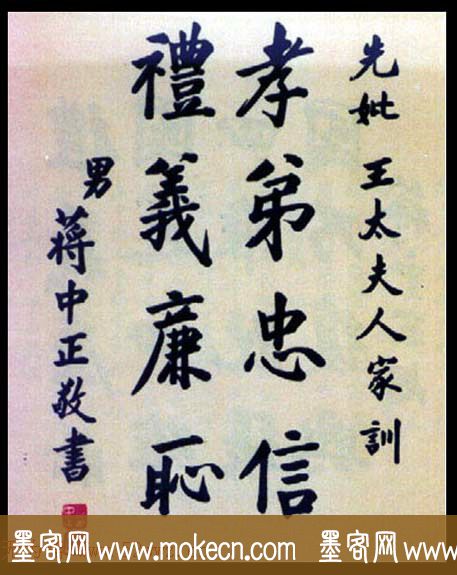 先妣王太夫人家訓
孝弟忠信
禮義廉恥
男蔣中正敬書
墨客网 www.mokecn.com 墨客网 www.mokecn.com